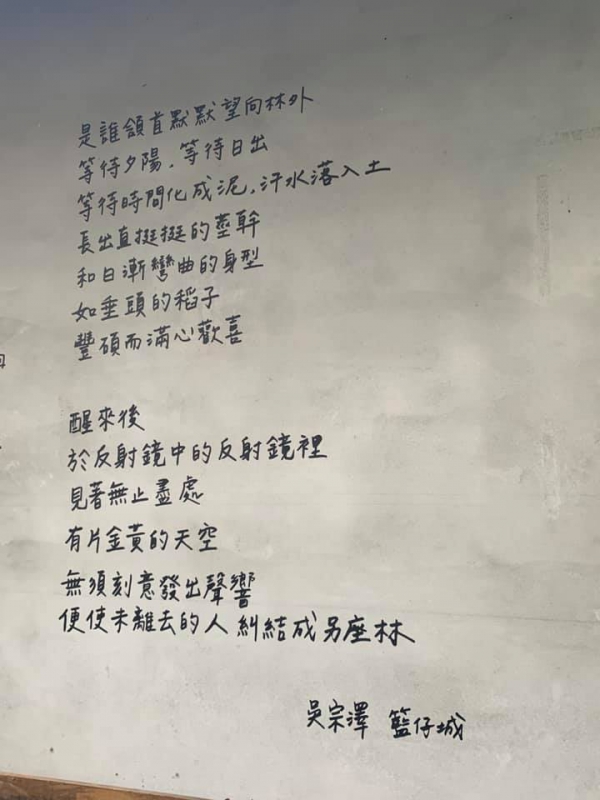 是誰頷首默默望向林外
等待夕陽，等待日出
等待時間化成泥，汗水落入土
長出直挺挺的莖幹
和日漸彎曲的身型
如垂頭的稻子
豐碩而滿心歡喜
醒來後
於反射鏡中的反射鏡裡
見著無止盡處
有片金黃的天空
無須刻意發出聲響
便使未離去的人糾結成另座林
吳宗澤 籃仔城